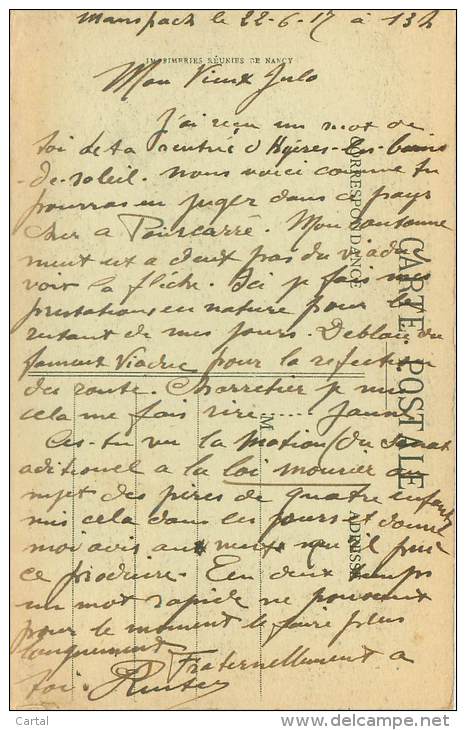 Manspach le 22-6-17 à 13h
IMPRIMERIES RÉUNIES DE NANCY
Mon Vieux Julo
J'ai reçu un mot de
toi de ta rentrée d'Hyères-les-bains
-de-soleil. nous voici comme tu
pourras en juger dans ce pays
cher a Poincarré. Mon cantonne
ment est a deux pas du viaduc
voir la flèche. Ici je fais mes
prestations en nature pour le
restant de mes jours. Déblai du
fameux Viaduc pour la refection
des route. Charretier je suis
cela me fais rire....
As-tu vu la Motion (du Senat
aditionel a la loi mourier au
sujet des pères de quatre enfants
mis cela dans les jours et donne
moi avis aux
ce produire. En deux temps
un mot rapide ne pouvant
pour le moment le faire plus
longuement
Fraternellement a
toi.
CARTE POSTALE
CORRESPONDANCE
ADRESSE
M
© Cartal
delcampe.net